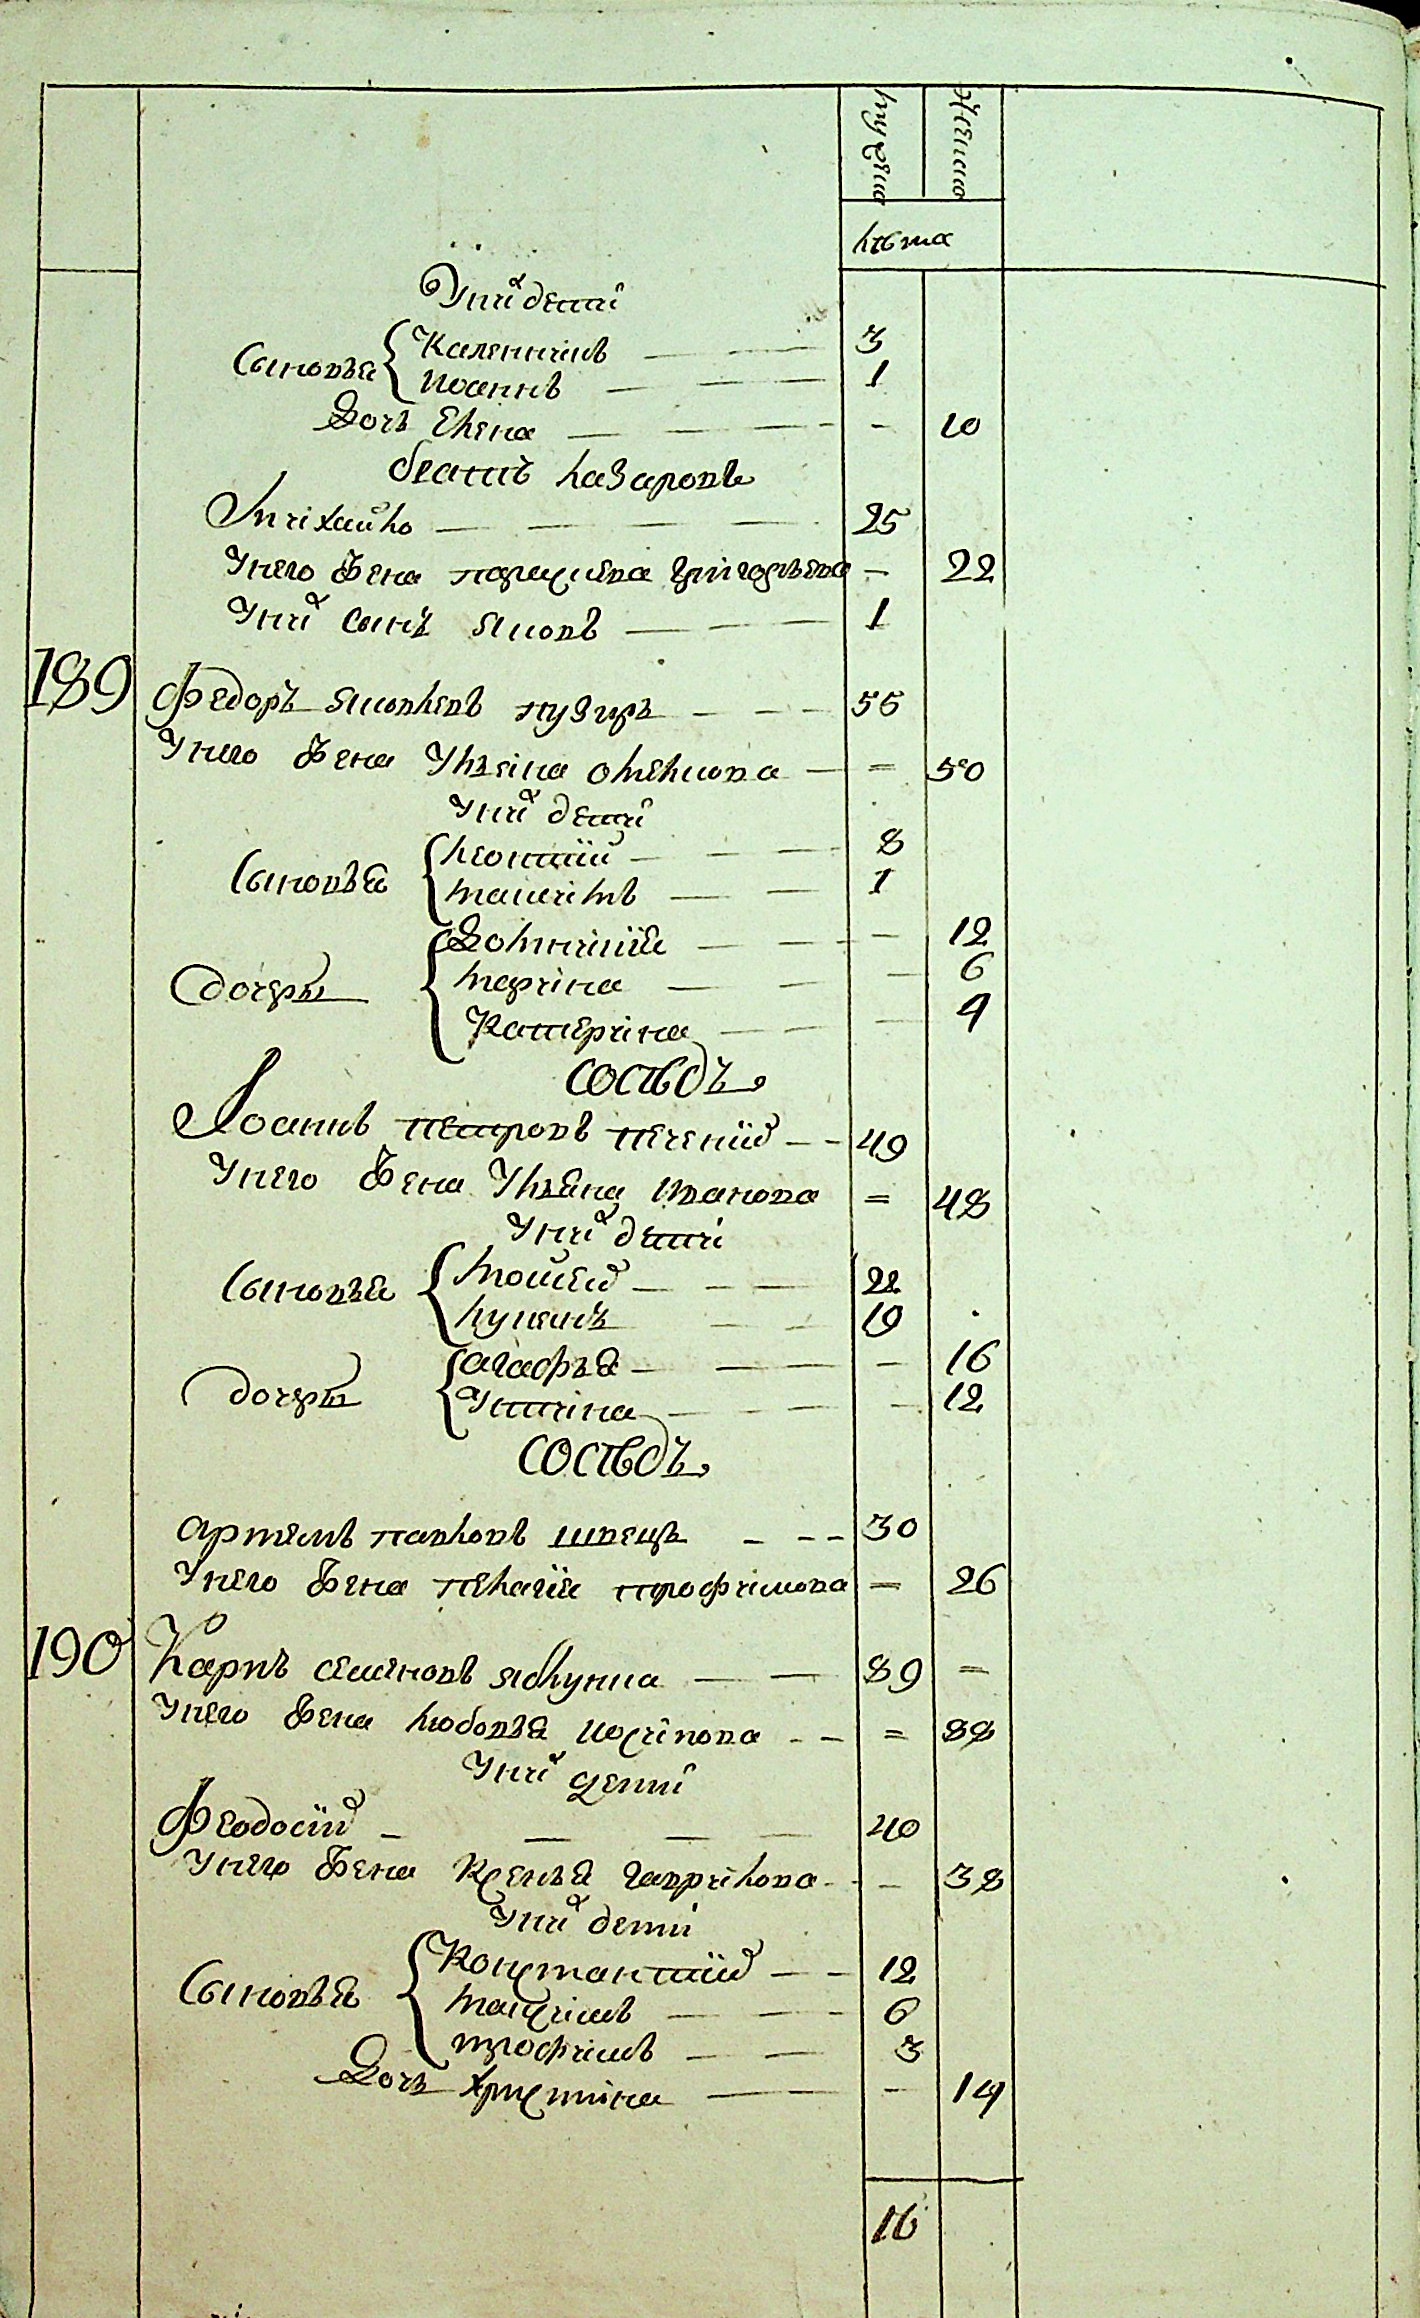 мужска женска
лѣта
У них дети
Сыновья Каленикъ 3
Иоаннъ 1
Дочь Елена - 10
братъ Лазаровъ
Михайло 25
У него жена параскева григорьева - 22
У них сынъ яковъ 1
189 Федоръ яковлевъ пузиръ 55
У него жена Ульяна олексиова = 50
У них дети
Сыновья леонтий 8
максимъ 1
дочери Домникия - 12
марина - 6
Катерина - 4
СОСѢДЪ
Иоаннъ петровъ печений 49
У него жена Ульяна иванова = 48
У них дети
Сыновья мойсей 22
лукианъ 19
дочери агафья - 16
Устина - 12
СОСѢДЪ
артемъ павловъ швецъ 30
У него жена пелагия трофимова = 26
190 Карпъ семеновъ яблунка 89 =
У него жена любовья иосипова = 88
У них дети
Феодосий 40
У него жена Ксенья гаврилова - 38
У них дети
Сыновья Константий 12
максимъ 6
трофимъ 3
Дочь христина - 14
16